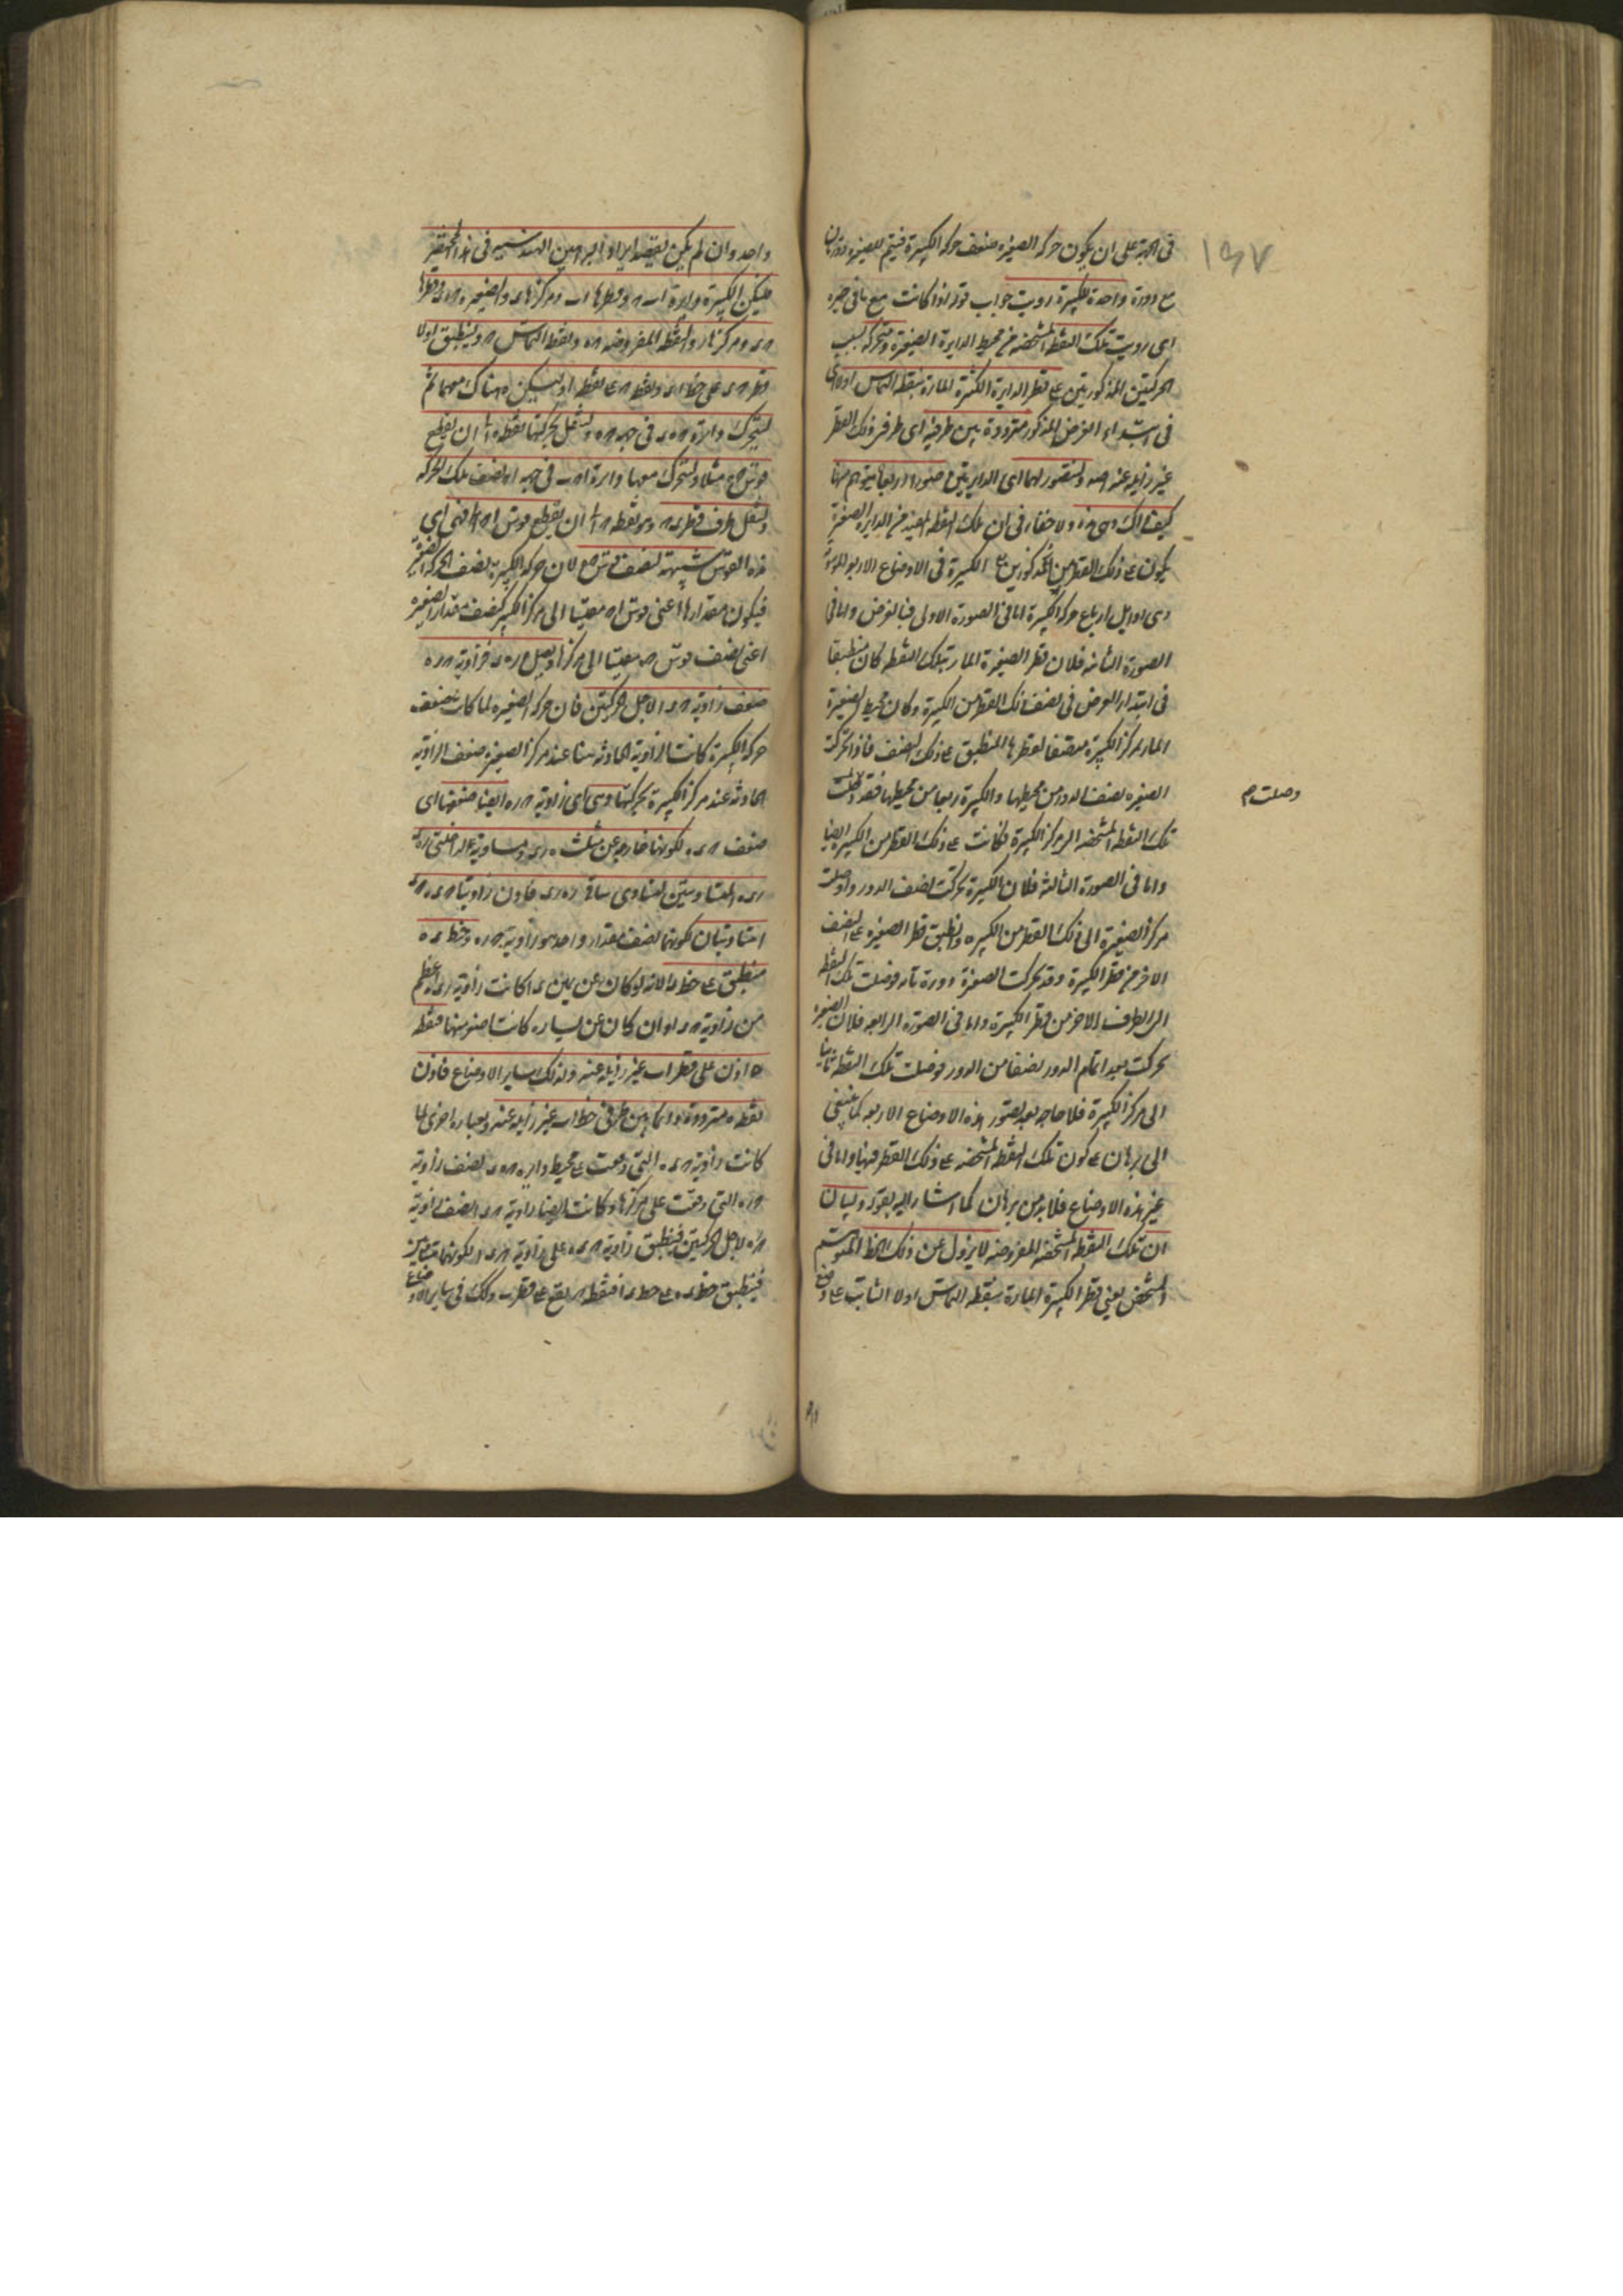 ١٥٧
فى الجهة على ان يكون حركة الصغيرة ضعف حركة الكبيرة فيتم للصغيرة دورتان
مع دورة واحدة للكبيرة رويت جواب قوله اذا كانت مع ما فى حيزه
اى رويت تلك النقطة المشخصة من محيط الدايرة الصغيرة متحركة بسبب
الحركتين المذكورتين على قطر الدايرة الكبيرة المارة بنقطة التماس اولا اى
فى ابتداء الفرض المذكور مترددة بين طرفيه اى طرفى ذلك القطر
غير زايلة عنه اصلا ولنصور لهما اى الدايرتين صورا اربعا يتوهم منها
كيفية ذلك وهى هذه ولا خفاء فى ان تلك النقطة المعينة من الدايرة الصغيرة
يكون على ذلك القطر من الكبيرة فى الاوضاع الاربعة
وهى اوايل ارباع حركة الكبيرة اما فى الصورة الاولى فبالفرض واما فى
الصورة الثانية فلان قطر الصغيرة المار بتلك النقطة كان منطبقا
فى ابتداء الفرض فى نصف ذلك القطر من الكبيرة وكان محيط الصغيرة
المار بمركز الكبيرة منصفا لقطرها المنطبق على ذلك النصف فاذا تحركت
الصغيرة نصف الدور من محيطها والكبيرة ربعا من محيطها فقد وصلت
وصلت م
تلك النقطة المشخصة الى مركز الكبيرة فكانت على ذلك القطر من الكبيرة ايضا
واما فى الصورة الثالثة فلان الكبيرة تحركت نصف الدور واوصلت
مركز الصغيرة الى ذلك القطر من الكبيرة وانطبق قطر الصغيرة على النصف
الاخر من قطر الكبيرة وقد تحركت الصغيرة دورة تامة فوصلت تلك النقطة
الى الطرف الاخر من قطر الكبيرة واما فى الصورة الرابعة فلان الصغيرة
تحركت بعد اتمام الدور نصفا من الدور فوصلت تلك النقطة ثانيا
الى مركز الكبيرة فلا حاجة بعد تصور هذه الاوضاع الاربعة كما ينبغى
الى برهان على كون تلك النقطة المشخصة على ذلك القطر فيها واما فى
غير هذه الاوضاع فلا بد من برهان كما اشار اليه بقوله ولبيان
ان تلك النقطة المشخصة المفروضة لا يزول عن ذلك الخط المتوهم
المشخص يعنى قطر الكبيرة المارة بنقطة التماس اولا الثابت على وضع
واحد وان لم يكن يقصد ايراد البراهين الهندسية فى هذا المختصر
فليكن الكبيرة دايرة اب وقطرها اب ومركزها د والصغيرة وقطرها
حد ومركزها ر والنقطة المفروضة ه ونقطة التماس وينطبق اولا
قطر حد على خط اد ونقطة ح على نقطة ا وليكن ه هناك معهما ثم
لتتحرك دايرة حه د فى جهة حه وتنتقل بحركتها نقطة ه الى ان يقطع
قوس حه مثلا ولتتحرك معها دايرة اب فى جهة اه بنصف تلك الحركة
وتنتقل طرف قطر حد وهو نقطة ح الى ان يقطع قوس اح فهى اى
هذه القوس شبيهة بنصف قوس حه لان حركة الكبيرة نصف الحركة الصغيرة
فيكون مقدارها اعنى قوس اح مقيسا الى مركز الكبيرة كنصف مقدار الصغيرة
اعنى نصف قوس حه مقيسا الى مركزها ونصل ره ده فزاوية حره
ضعف زاوية حدا لاجل الحركتين فان حركة الصغيرة لما كانت ضعف
حركة الكبيرة كانت الزاوية الحادثة هنا عند مركز الصغيرة ضعف الزاوية
الحادثة عند مركز الكبيرة بحركتها وهى اى زاوية حره ايضا ضعفها اى
ضعف حده لكونها خارجة عن مثلث ره د ومساوية لداخلتى
المتساويتين لتساوى ساقى ره رد فاذن زاويتا حده حدا
متساويتان لكونهما نصف مقدار واحد هو زاوية حره وخط ده
منطبق على خط دا لانه لو كان عن يمين دا كانت زاوية اعظم
من زاوية حدا وان كان عن يساره كانت اصغر منها فنقطة
ه اذن على قطر اب غير زايلة عنه وكذلك ساير الاوضاع فاذن
نقطة ه مترددة دايما بين طرفى خط اب غير زايلة عنه وبعبارة اخرى لما
كانت زاوية حده التى وقعت على محيط دايرة حه د نصف زاوية
حره التى وقعت على مركزها وكانت ايضا زاوية حدا نصف زاوية
حره لاجل الحركتين فينطبق زاوية حده على زاوية حدا لكونهما متساويتين
فينطبق خط ده على خط دا فنقطة ه يقع على قطر اب وكذلك فى ساير الاوضاع